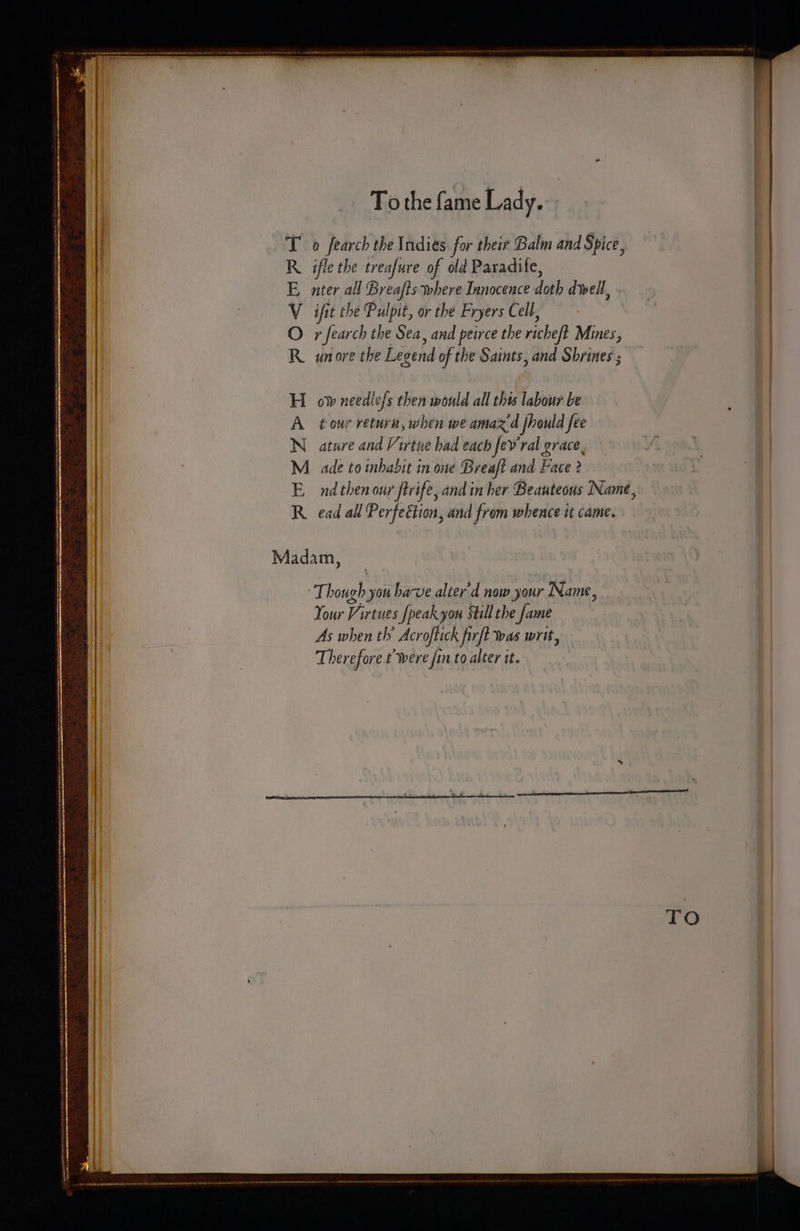 To the ſame Lady.
T o ſearch the Indies for their Balm and Spice,
R ifle the treaſure of old Paradiſe,
E nter all Breaſts where Innocence doth dwell,
V iſit the Pulpit, or the Fryers Cell,
O r ſearch the Sea, and peirce the richeſt Mines,
R un ore the Legend of the Saints, and Shrines;
H ow needleſs then would all this labour be
A t our return, when we amaz'd ſhould ſee
N ature and Virtue had each ſev'ral grace,
M ade to inhabit in one Breaſt and Face?
E nd then our ſtrife, and in her Beauteous Name,
R ead all Perfection, and from whence it came.
Madam,
Though you have alter'd now your Name,
Your Virtues ſpeak you Still the ſame
As when th' Acroſtick firſt was writ,
Therefore t'were ſin to alter it.
TO